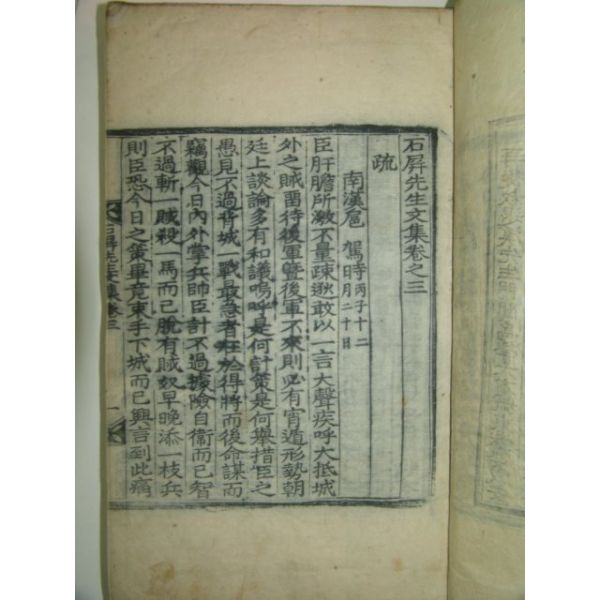 石屛先生文集卷之三
疏
南漢扈 駕時丙子十二月二十日
臣肝膽所激不量疎逖敢以一言大聲疾呼大抵城
外之賊留待後軍曁後軍不來則必有宵遁形勢朝
廷上談論多有和議嗚呼是何計策是何舉措臣之
愚見不過背城一戰最急者在於得將而後命謀而
竊觀今日內外掌兵帥臣計不過據險自衛而已智
不過斬一賊殺一馬而已脫有賊奴早晚添一枝兵
則臣恐今日之策畢竟束手下城而已興言到此痛
石屛先生文集卷三
一